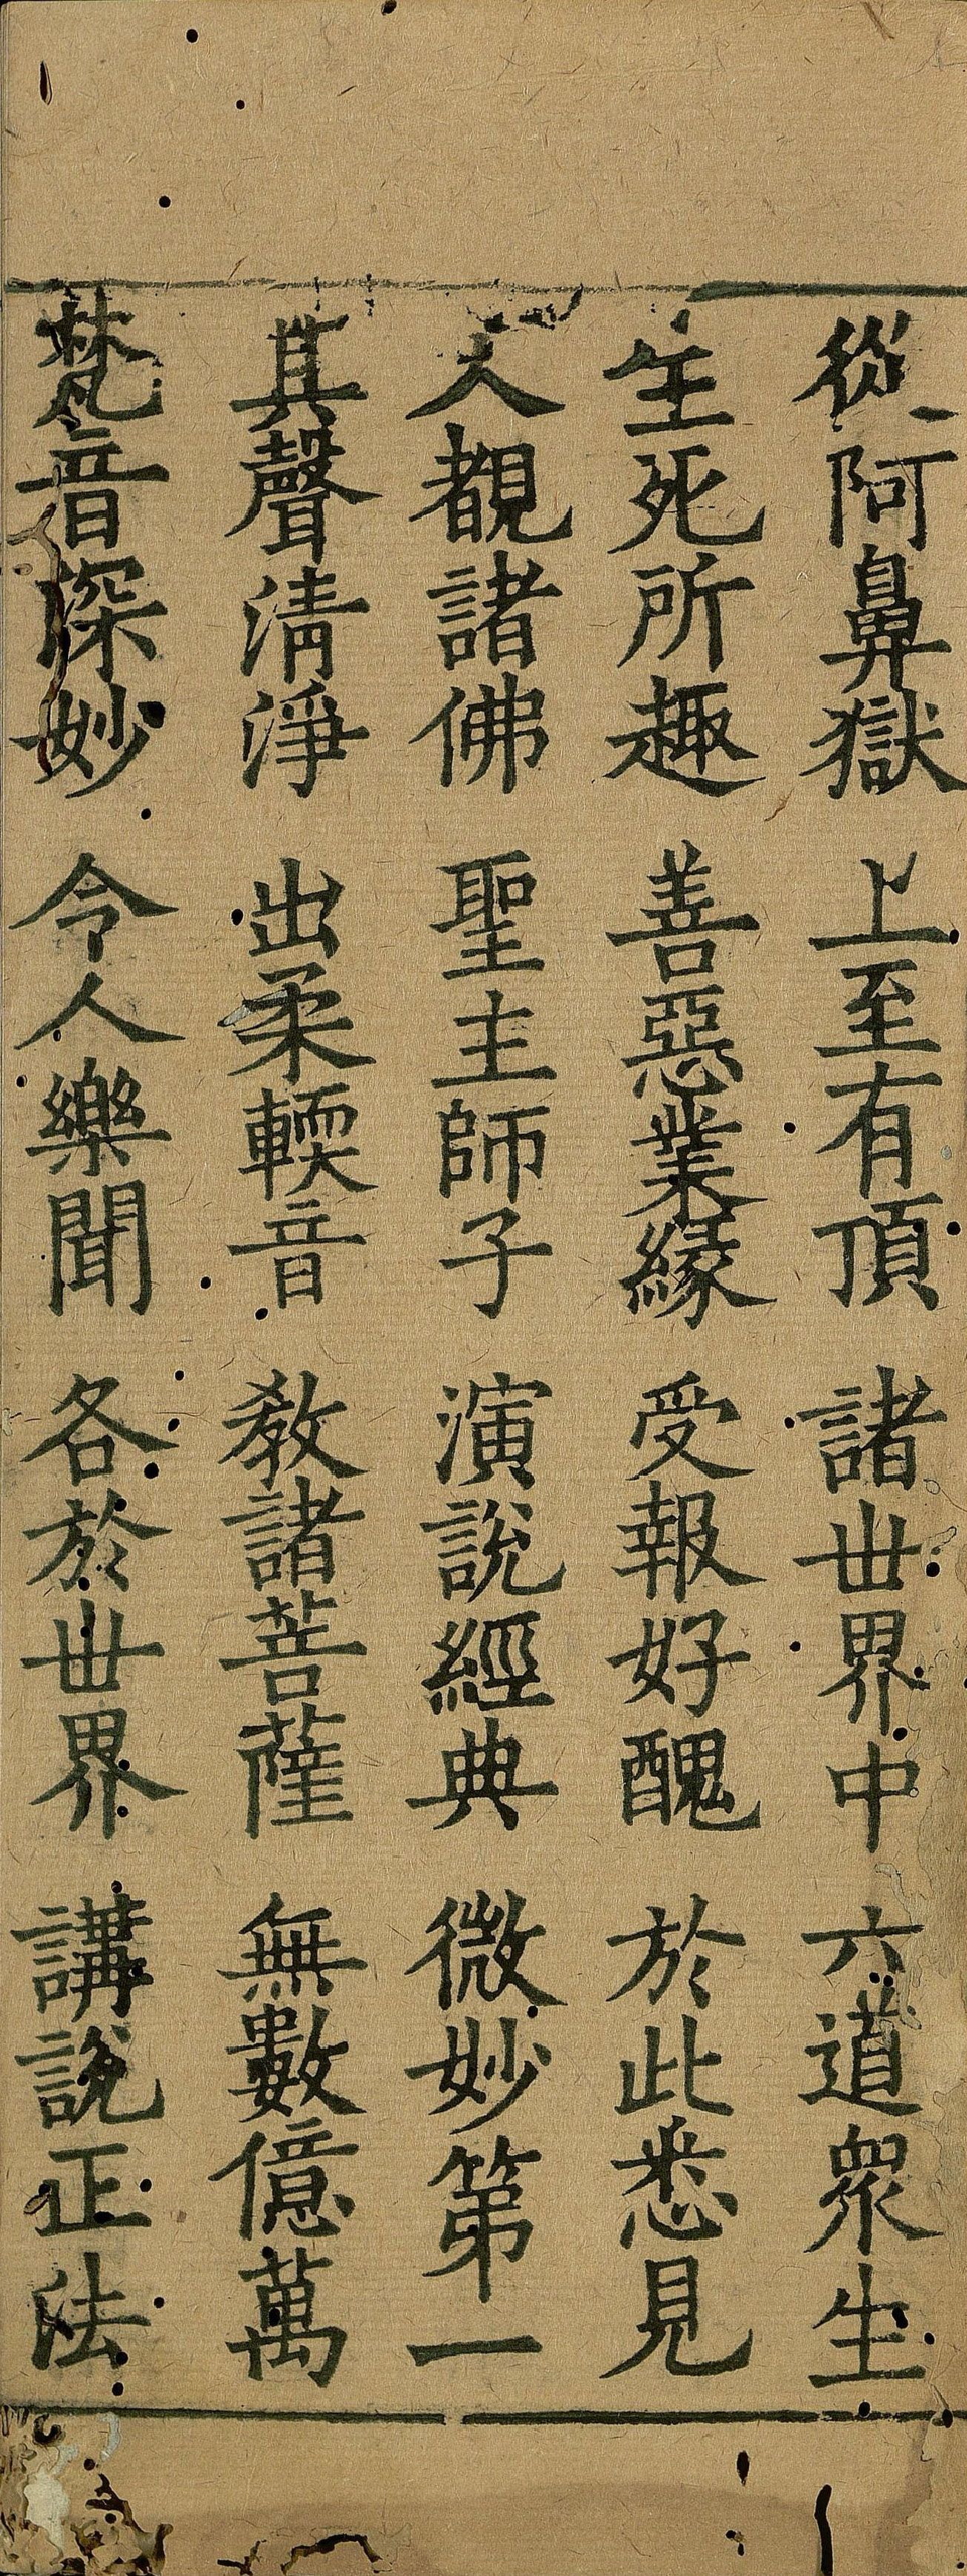 從阿鼻獄 上至有頂 諸世界中 六道眾生
生死所趣 善惡業緣 受報好醜 於此悉見
又覩諸佛 聖主師子 演說經典 微妙第一
其聲清淨 出柔輭音 教諸菩薩 無數億萬
梵音深妙 令人樂聞 各於世界 講說正法